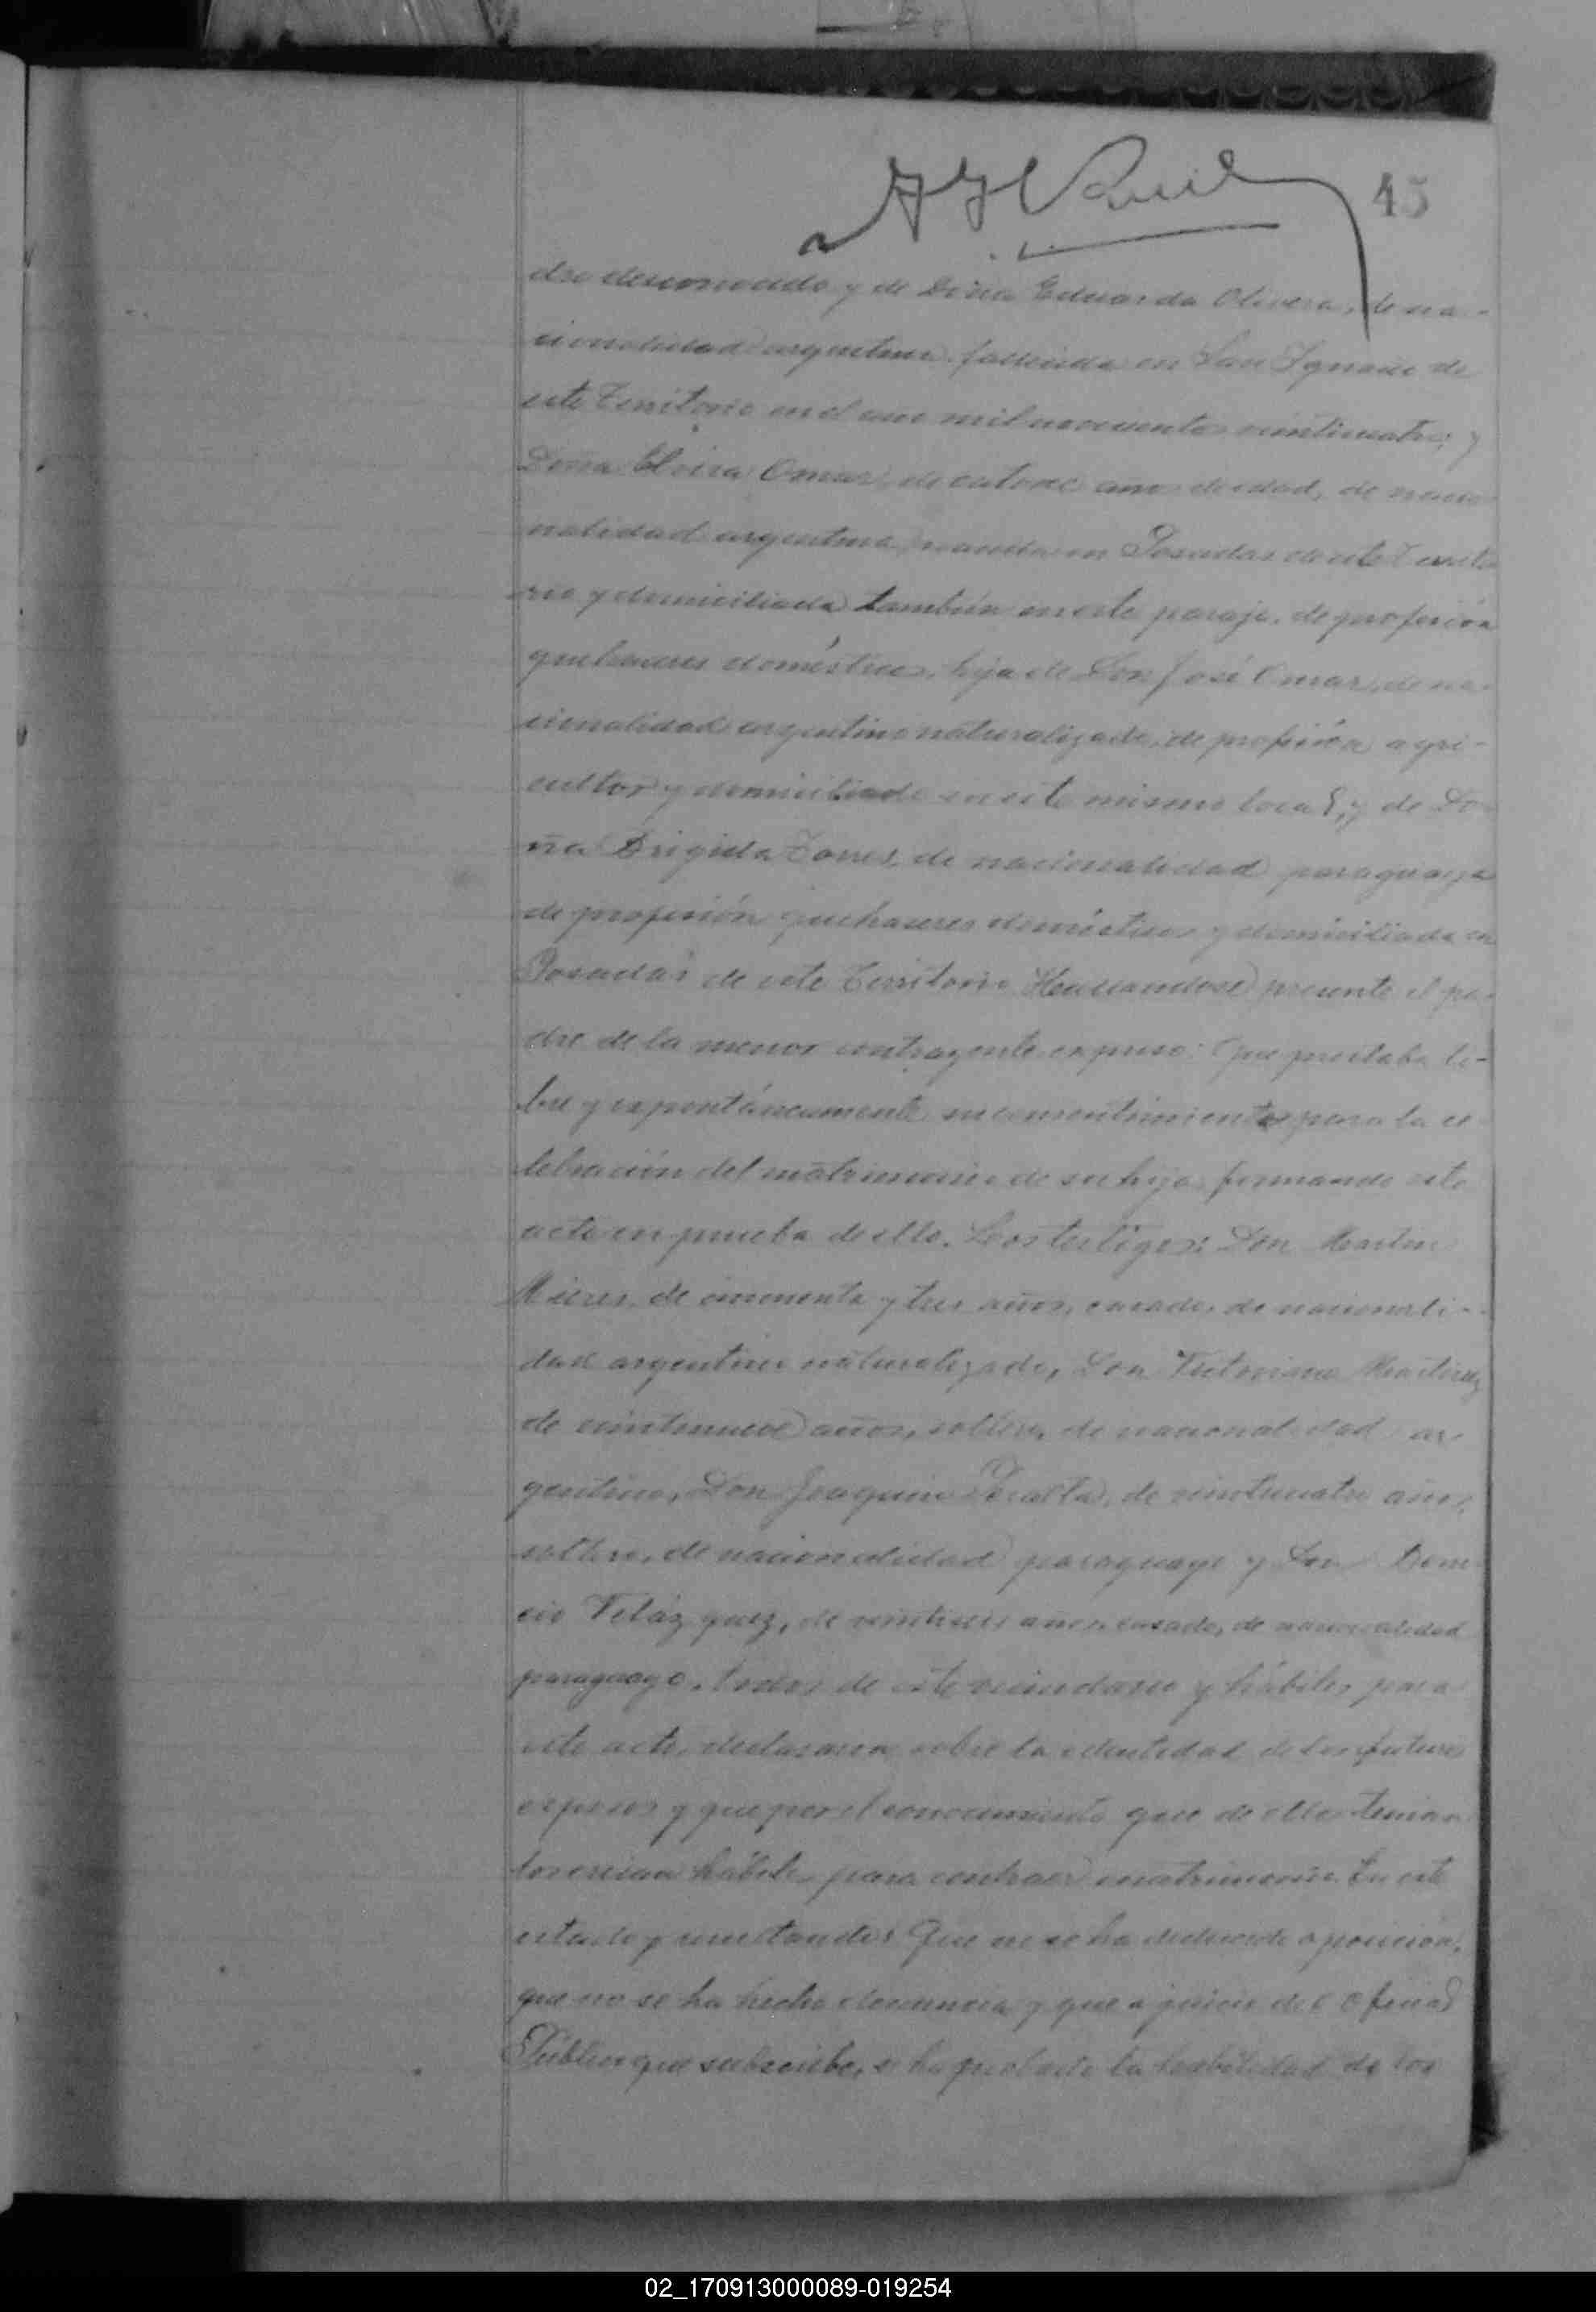 45
dre desconocido y de Doña Eduarda Olivera, de na-
cionalidad argentina fallecida en San Ignacio de
este Territorio en el año mil novecientos veinticuatro; y
Doña Elvira Omar, de catorce años de edad, de nacio
nalidad argentina, nacida en Posadas de este Territo
rio y domiciliada también en este paraje, de profesión
quehaceres domésticos, hija de Don José Omar, de na-
cionalidad argentino naturalizado, de profesión agri-
cultor y domiciliado en este mismo local, y de Do
ña Brigida Torres, de nacionalidad paraguaya
de profesión quehaceres domésticos y domiciliada en
Posadas de este Territorio. Hallandose presente el pa-
dre de la menor contrayente expuso: Que prestaba li-
bre y expontáneamente su consentimiento para la ce
lebración del matrimonio de su hija firmando este
acta en prueba de ello. Los testigos: Don Martin
Mieres, de cincuenta y tres años, casado, de nacionali-
dad argentino naturalizado, Don Victoriano Martinez
de veintinueve años, soltero, de nacionalidad ar
gentino, Don Joaquin Peralta, de veinticuatro años,
soltero, de nacionalidad paraguayo y Don
cio Velázquez, de veintiseis años casado, de nacionalidad
paraguayo, todos de este vecindario y hábiles para
este acto, declararon sobre la identidad de los futuros
esposos y que por el conocimiento que de ellos tenian
los creian hábiles para contraer matrimonio. En este
estado y resultando: Que no se ha deducido oposición,
que no se ha hecho denuncia y que a juicio del Oficial
Público que subscribe, se ha probado la habilidad de los
02_170913000089-019254